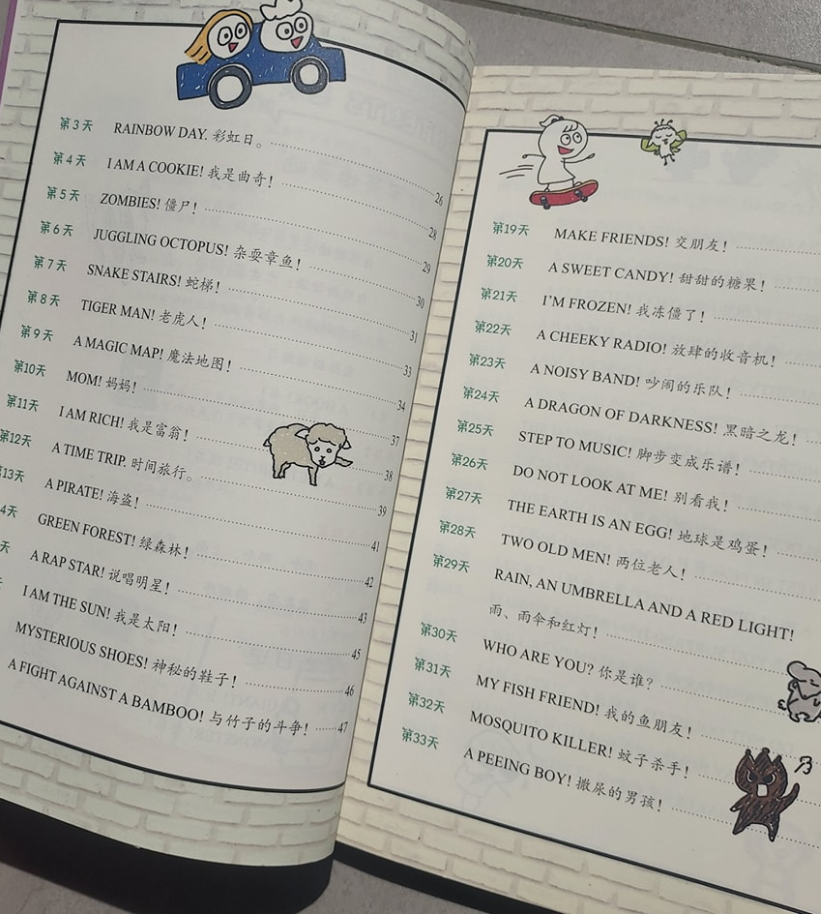 第3天 RAINBOW DAY. 彩虹日。 26
第4天 I AM A COOKIE! 我是曲奇! 28
第5天 ZOMBIES! 僵尸! 29
第6天 JUGGLING OCTOPUS! 杂耍章鱼! 30
第7天 SNAKE STAIRS! 蛇梯! 31
第8天 TIGER MAN! 老虎人! 33
第9天 A MAGIC MAP! 魔法地图! 34
第10天 MOM! 妈妈! 37
第11天 I AM RICH! 我是富翁! 38
第12天 A TIME TRIP. 时间旅行。 39
13天 A PIRATE! 海盗! 41
4天 GREEN FOREST! 绿森林! 42
天 A RAP STAR! 说唱明星! 43
I AM THE SUN! 我是太阳! 45
MYSTERIOUS SHOES! 神秘的鞋子! 46
A FIGHT AGAINST A BAMBOO! 与竹子的斗争! 47
第19天 MAKE FRIENDS! 交朋友!
第20天 A SWEET CANDY! 甜甜的糖果!
第21天 I'M FROZEN! 我冻僵了!
第22天 A CHEEKY RADIO! 放肆的收音机!
第23天 A NOISY BAND! 吵闹的乐队!
第24天 A DRAGON OF DARKNESS! 黑暗之龙!
第25天 STEP TO MUSIC! 脚步变成乐谱!
第26天 DO NOT LOOK AT ME! 别看我!
第27天 THE EARTH IS AN EGG! 地球是鸡蛋!
第28天 TWO OLD MEN! 两位老人!
第29天 RAIN, AN UMBRELLA AND A RED LIGHT!
雨、雨伞和红灯!
第30天 WHO ARE YOU? 你是谁?
第31天 MY FISH FRIEND! 我的鱼朋友!
第32天 MOSQUITO KILLER! 蚊子杀手!
第33天 A PEEING BOY! 撒尿的男孩!